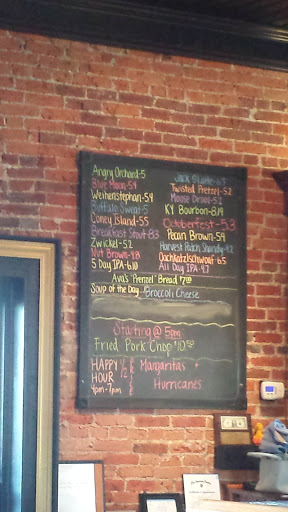 Angry Orchard-5
Blue Moon-5.4
Weihenstephan-5.4
Buffalo Sweat-5
Coney Island-5.5
Breakfast Stout-8.3
Zwickel-5.2
Nut Brown-4.8
5 Day IPA-6.10
Twisted Pretzel-5.2
Moose Drool-5.2
KY Bourbon-8.19
Octoberfest-5.3
Pecan Brown-5.4
Harvest Patch Shandy-4.2
Oachkatzlschwoaf 6.5
All Day IPA-4.7
Ava's "Pretzel" Bread $7.00
Soup of the Day Broccoli Cheese
Starting @ 5pm
Fried Pork Chop $10.50
HAPPY HOUR
4pm-7pm
1/2
Margaritas
Hurricanes